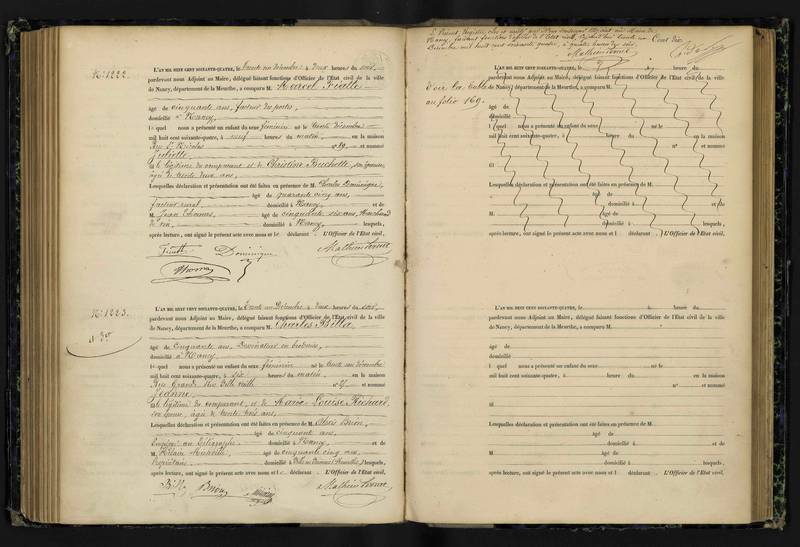 N° 1222.
L'AN MIL HUIT CENT SOIXANTE-QUATRE, le trente un Décembre à deux heures du soir,
pardevant nous Adjoint au Maire, délégué faisant fonctions d'Officier de l'État civil de la ville
de Nancy, département de la Meurthe, a comparu M. Marcel
âgé de cinquante ans, facteur des postes,
domicilié à Nancy
lequel nous a présenté un enfant du sexe féminin né le trente Décembre
mil huit cent soixante-quatre, à neuf heures du matin, en la maison
Rue St Nicolas n° 89, et nommé
Juliette
fille légitime du comparant et de Christine Buchotte, son épouse,
âgée de trente deux ans,
Lesquelles déclaration et présentation ont été faites en présence de M. Charles Dominique,
âgé de quarante cinq ans,
facteur rural, domicilié à Nancy et de
M. Jean Thomas, âgé de cinquante six ans, Marchand
de vin, domicilié à Nancy, lesquels,
après lecture, ont signé le présent acte avec nous et le déclarant. L'Officier de l'État civil,
Dominique
Thomas
N° 1223.
L'AN MIL HUIT CENT SOIXANTE-QUATRE, le trente un Décembre à deux heures du soir,
pardevant nous Adjoint au Maire, délégué faisant fonctions d'Officier de l'État civil de la ville
de Nancy, département de la Meurthe, a comparu M. Charles Billa
âgé de cinquante ans, Dessinateur en broderie,
domicilié à Nancy
lequel nous a présenté un enfant du sexe féminin né le trente un décembre
mil huit cent soixante-quatre, à six heures du matin, en la maison
Rue Grande Rue Ville vieille n° 27 et nommé
Jeanne
fille légitime du comparant, et de Marie Louise Richard,
son épouse, âgée de trente trois ans,
Lesquelles déclaration et présentation ont été faites en présence de M. Brion,
âgé de cinquante ans,
Employé au Télégraphe domicilié à Nancy et de
M. Hilaire âgé de cinquante cinq ans,
domicilié à lesquels,
après lecture, ont signé le présent acte avec nous et le déclarant. L'Officier de l'État civil,
Billa Brion
Cent dix
L'AN MIL HUIT CENT SOIXANTE-QUATRE, le à heures du
pardevant nous Adjoint au Maire, délégué faisant fonctions d'Officier de l'État civil de la ville
de Nancy, département de la Meurthe, a comparu M.
Voir la table
au folio 169.
âgé de
domicilié
l quel nous a présenté un enfant du sexe né le
mil huit cent soixante-quatre, à heures du en la maison
n° et nommé
fil
Lesquelles déclaration et présentation ont été faites en présence de M.
âgé de
domicilié à et de
M. âgé de
domicilié à lesquels,
après lecture, ont signé le présent acte avec nous et l déclarant. L'Officier de l'État civil,
L'AN MIL HUIT CENT SOIXANTE-QUATRE, le à heures du
pardevant nous Adjoint au Maire, délégué faisant fonctions d'Officier de l'État civil de la ville
de Nancy, département de la Meurthe, a comparu M.
âgé de
domicilié
l quel nous a présenté un enfant du sexe né le
mil huit cent soixante-quatre, à heures du en la maison
n° et nommé
fil
Lesquelles déclaration et présentation ont été faites en présence de M.
âgé de
domicilié à et de
M. âgé de
domicilié à lesquels,
après lecture, ont signé le présent acte avec nous et l déclarant. L'Officier de l'État civil,